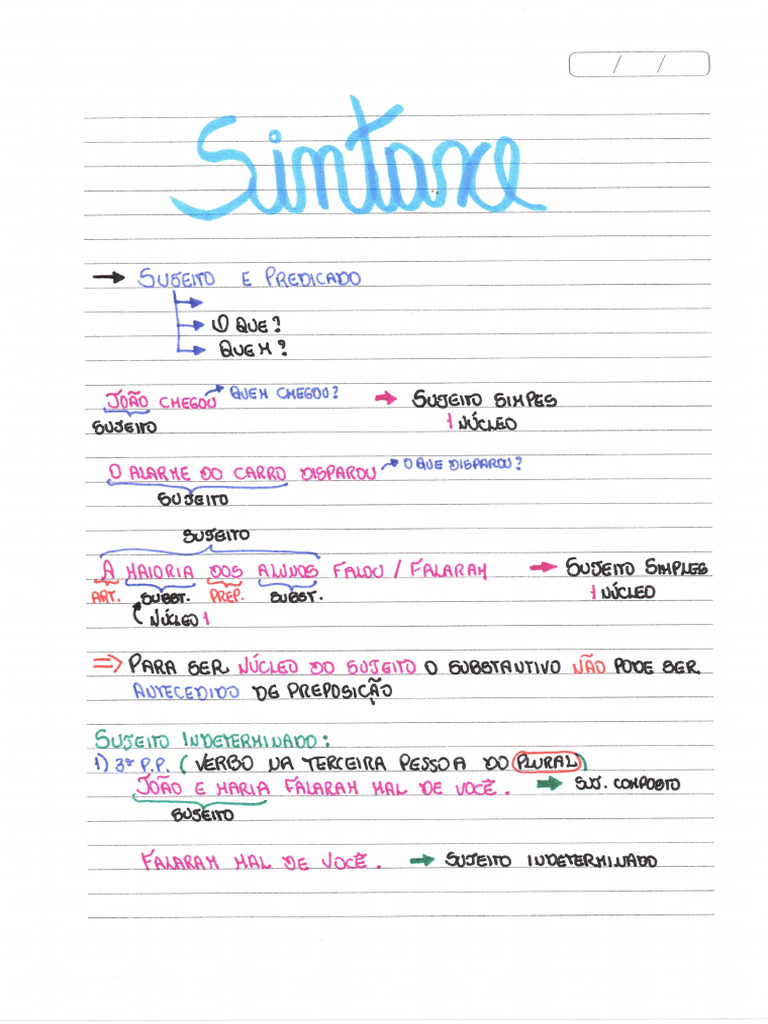 / /
Sintaxe
→ SUJEITO E PREDICADO
→
→ O QUE?
→ QUEM?
JOÃO CHEGOU → QUEM CHEGOU? → SUJEITO SIMPES
SUJEITO 1 NÚCLEO
O ALARME DO CARRO DISPAROU → O QUE DISPAROU?
SUJEITO
SUJEITO
A MAIORIA DOS ALUNOS FALOU / FALARAM → SUJEITO SIMPLES
ART. SUBST. PREP. SUBST. 1 NÚCLEO
NÚCLEO 1
⇒ PARA SER NÚCLEO DO SUJEITO O SUBSTAUTIVO NÃO PODE SER
ANTECEDIDO DE PREPOSIÇÃO
SUJEITO INDETERMINADO:
1) 3ª P.P. (VERBO NA TERCEIRA PESSOA DO PLURAL)
JOÃO E MARIA FALARAM MAL DE VOCÊ. → SUJ. COMPOSTO
SUJEITO
FALARAM MAL DE VOCÊ. → SUJEITO INDETERMINADO